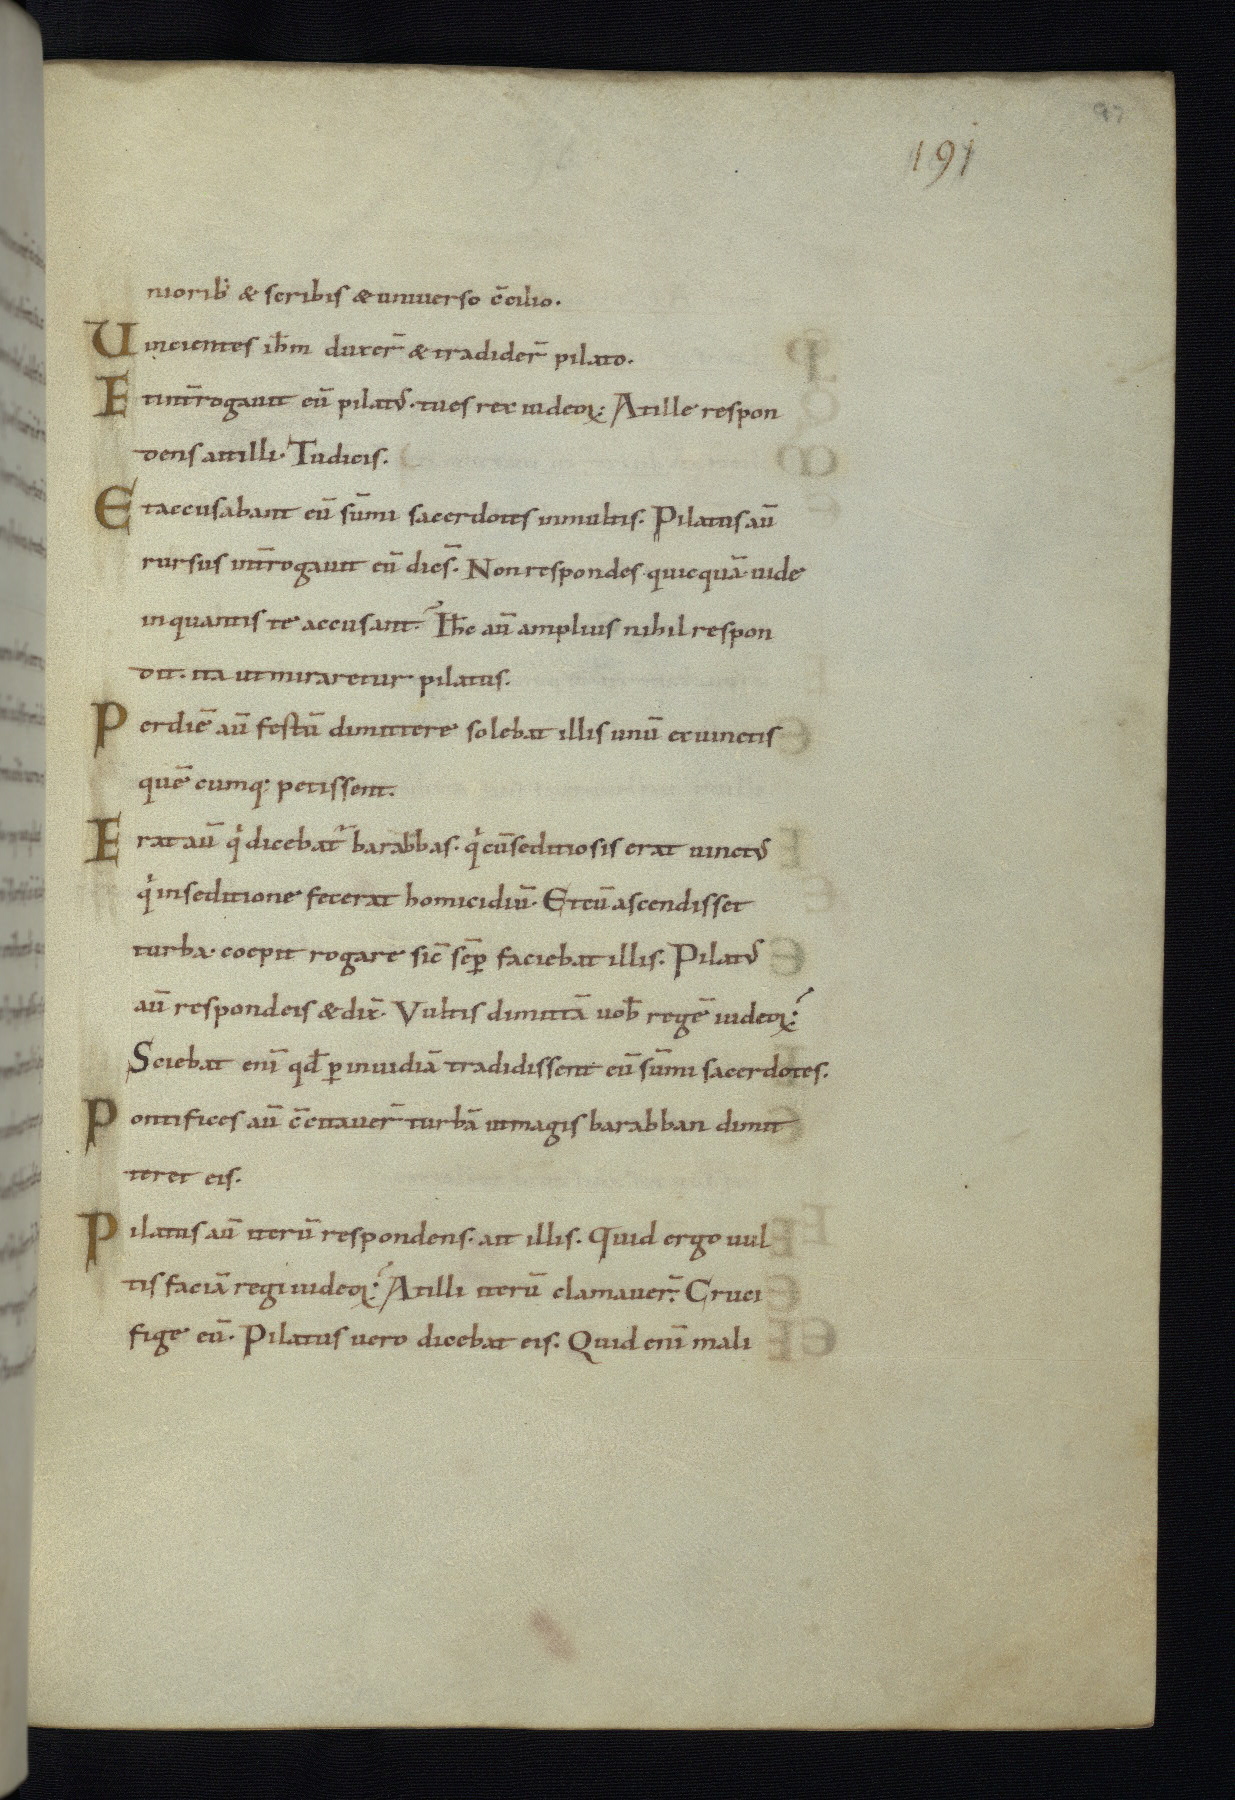 97
191
niorib; & scribis & universo c̄cilio.
Uincientes ih̄m duxer̄ & tradider̄ pilato.
Et int̄rogavit eū pilatꝰ. tu es rex iudeoꝝ? At ille respon
dens ait illi. Tu dicis.
Et accusabant eū sūmi sacerdotes in multis. Pilatus aū
rursus int̄rogavit eū dicēs. Non respondes quicquā vide
in quantis te accusant? Ih̄c aū amplius nihil respon
dit. ita ut miraretur pilatus.
Per diē aū festū dimittere solebat illis unū ex vinctis
quē cumq; petissent.
Erat aū qͥ dicebat᷑ barabbas. qͥ cū seditiosis erat vinctꝰ
qͥ in seditione fecerat homicidiū. Et cū ascendisset
turba. coepit rogare sic̄ sēp̄ faciebat illis. Pilatꝰ
aū respondeis & dix̄. Vultis dimittā vob̄ regē iudeoꝝ?
Sciebat enī qd̄ ꝑ invidiā tradidissent eū sūmi sacerdotes.
Pontifices aū c̄citaver̄ turbā ut magis barabban dimit
teret eis.
Pilatus aū iterū respondens. ait illis. Quid ergo vul
tis faciā regi iudeoꝝ? At illi iterū clamaver̄. Cruci
fige eū. Pilatus vero dicebat eis. Quid enī mali